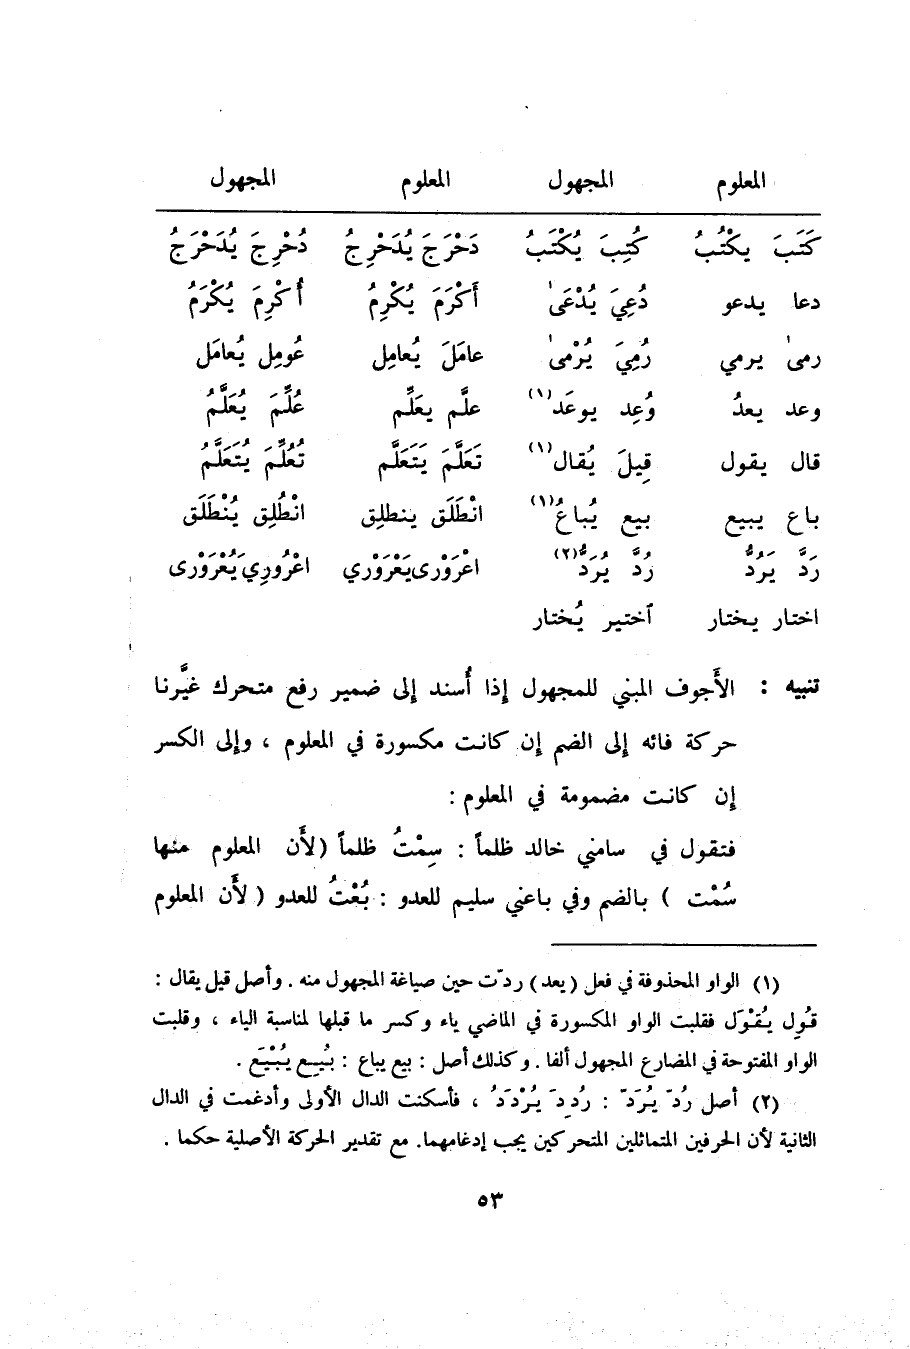 المعلوم المجهول المعلوم المجهول
كَتَبَ يكْتُبُ كُتِبَ يُكْتَبُ دَحْرَجَ يُدَحْرِجُ دُحْرِجَ يُدَحْرَجُ
دعا يدعو دُعِيَ يُدْعَىٰ أَكْرَمَ يُكْرِمُ أُكْرِمَ يُكْرَمُ
رمىٰ يرمي رُمِيَ يُرْمىٰ عامَلَ يُعامِل عُومِل يُعامَل
وعد يعدُ وُعِد يوعَد(١) علَّم يعلِّم عُلِّمَ يُعَلَّمُ
قال يقول قِيلَ يُقال(١) تَعَلَّمَ يَتَعَلَّم تُعُلِّمَ يُتَعَلَّمُ
باع يبيع بيع يُباعُ(١) انْطَلَق ينطلِق انْطُلِق يُنْطَلَق
رَدَّ يَرُدُّ رُدَّ يُرَدُّ(٢) اعْرَوْرى يَعْرَوْرِي اعْرُورِي يُعْرَوْرى
اختار يختار اَختير يُختار
تنبيه : الأَجوف المبني للمجهول إِذا أُسند إِلى ضمير رفع متحرك غيَّرنا
حركة فائه إِلى الضم إِن كانت مكسورة في المعلوم ، وإِلى الكسر
إِن كانت مضمومة في المعلوم :
فتقول في سامني خالد ظلماً : سِمْتُ ظلماً (لأَن المعلوم منها
سُمْت ) بالضم وفي باعني سليم للعدو : بُعْتُ للعدو ( لأَن المعلوم
(١) الواو المحذوفة في فعل ( يعد ) ردّت حين صياغة المجهول منه . وأصل قيل يقال :
قُوِل يُقْوَل فقلبت الواو المكسورة في الماضي ياء وكسر ما قبلها لمناسبة الياء ، وقلبت
الواو المفتوحة في المضارع المجهول ألفا . وكذلك أصل : بيع يباع : بُيِـع يُبْيَع .
(٢) أصل رُدّ يُرَدّ : رُدِدَ يُرْدَدُ ، فأسكنت الدال الأولى وأدغمت في الدال
الثانية لأن الحرفين المتماثلين المتحركين يجب إدغامهما. مع تقدير الحركة الأصلية حكما .
٥٣